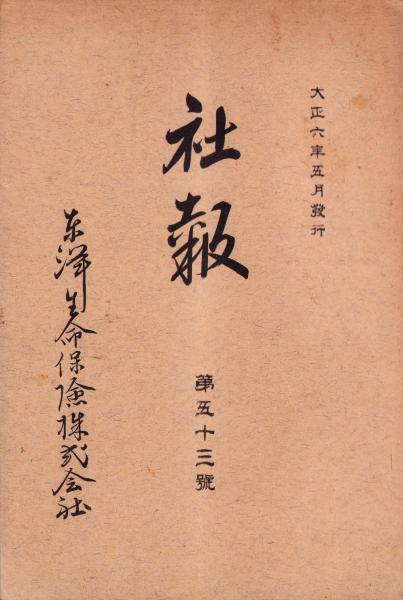 大正六年五月發行
社報
第五十三號
东洋生命保險株式会社